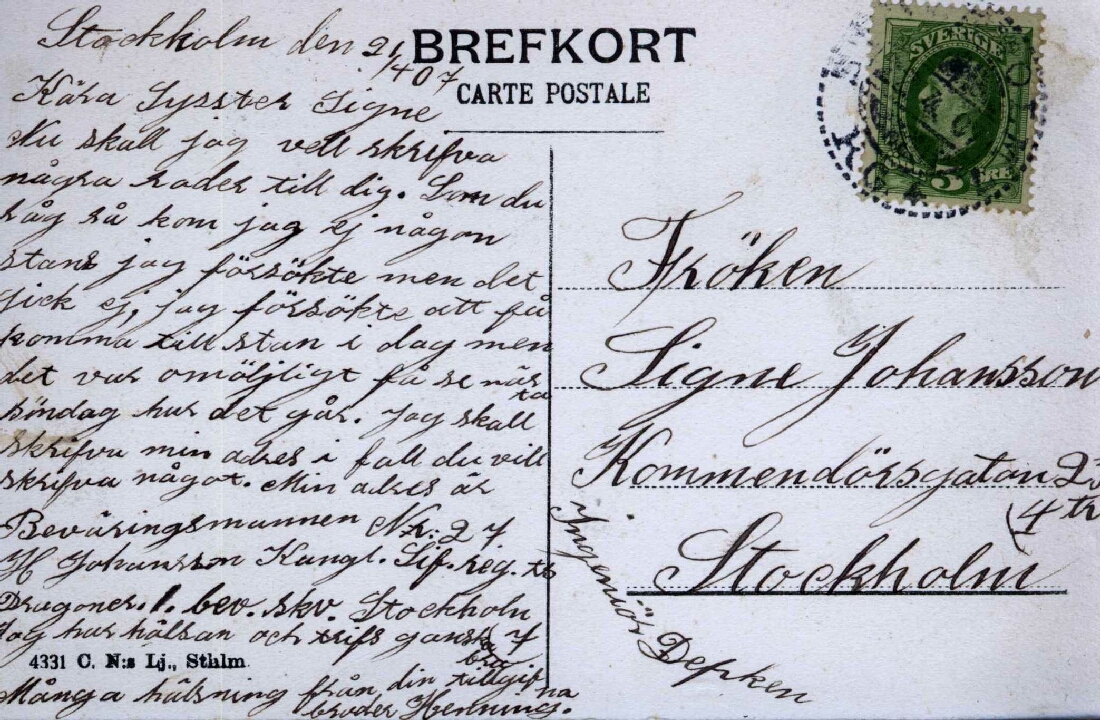 BREFKORT
CARTE POSTALE
SVERIGE
5 ÖRE
Stockholm den 2/4 07
Kära Sysster Signe
Nu skall jag vell skrifva
några rader till dig. Som du
såg så kom jag ej någon
stans jag försökte men det
gick ej, jag försökte att få
komma till stan i dag men
det var omöjligt få se näs
ta
söndag hur det går. Jag skall
skrifva min adres i fall du vill
skrifva något. Min adres är
Beväringsmannen Nr: 27
H Johansson Kungl. Lif. reg. ts
Dragoner. 1. bev. skv. Stockholm 7
Jag har hälsan och trifs ganska
bra
Många hälsning från din tillgifna
broder Henning.
4331 C. N:s Lj., Sthlm.
Fröken
Signe Johansson
Kommendörsgatan
4 tr
Stockholm
Ingeniör Depken